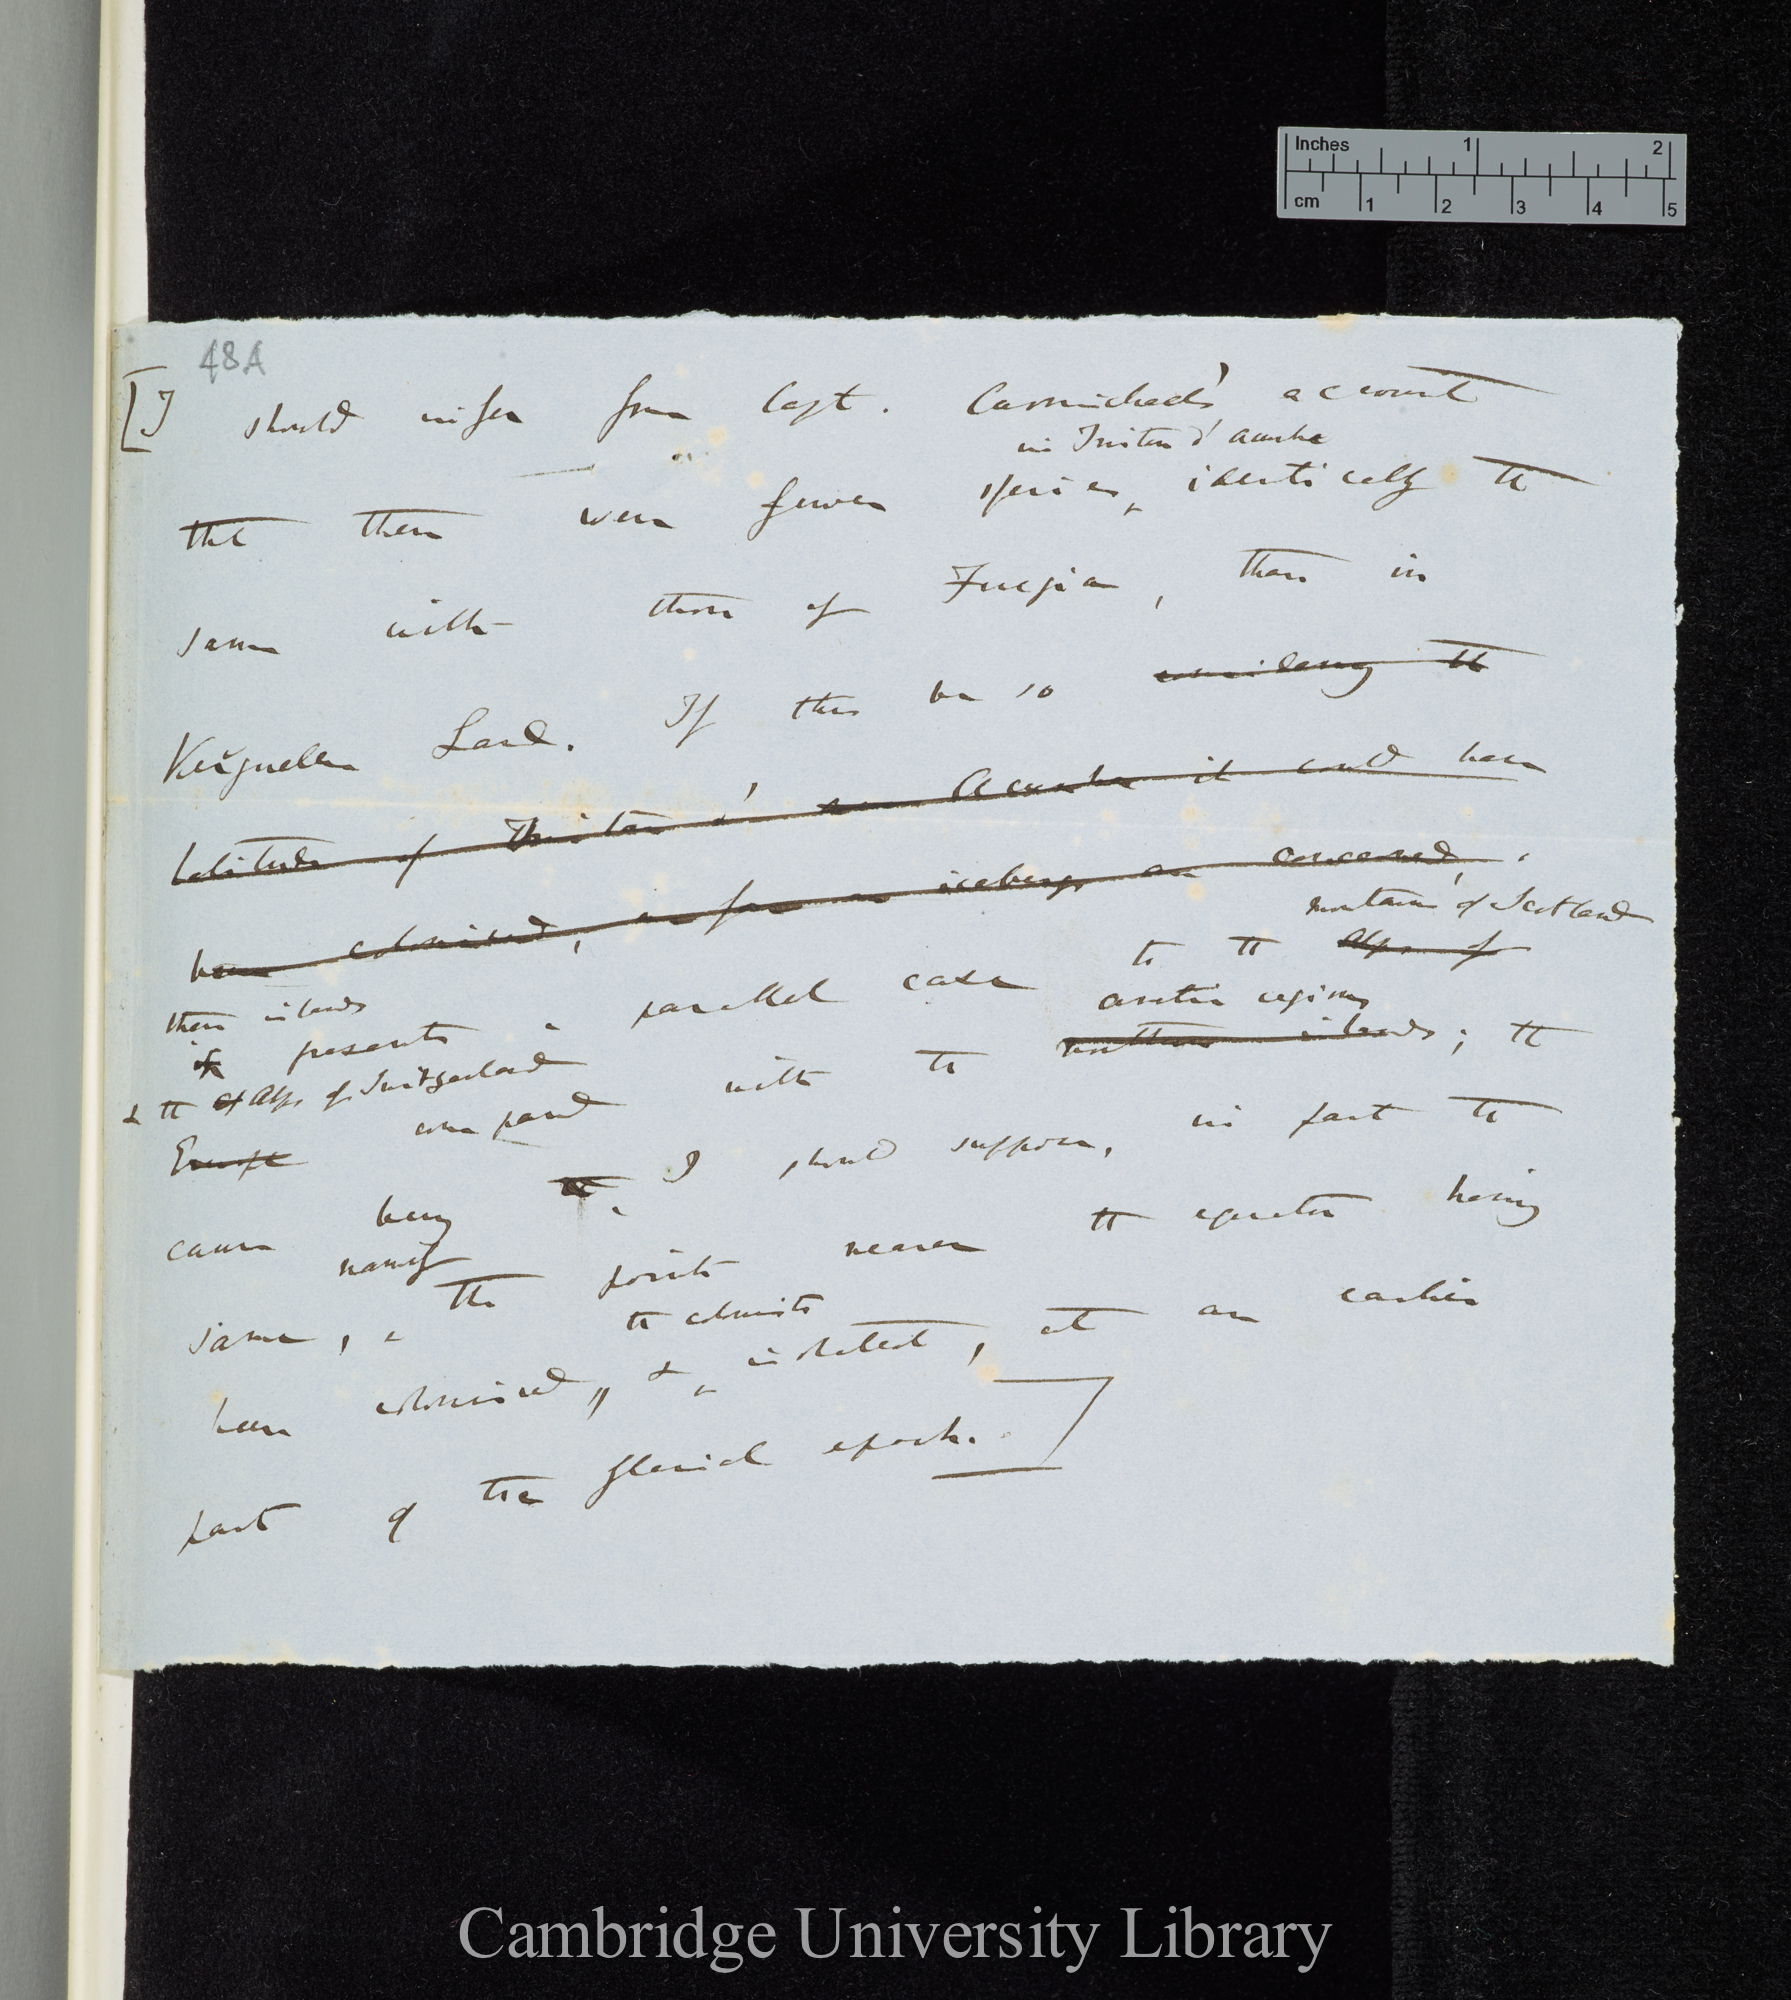 Inches 1 2
cm 1 2 3 4 5
48A
[I should infer from Capt. Carmichael's account
in Tristan d' Acunha
that there were fewer species, identically the
same with those of Fuegia, than in
Kerguelen Land. If this be so considering the
latitude of Tristan d' Acunha it could have
been colonised, as far as icebergs are concerned,
mountains of Scotland
these islands
it presents a parallel case to the Alps of
& the Alps of Switzerland
arctic regions
Europe compared with the northern islands; the
cause being the I should suppose, in part the
namely
same, the points nearer the equator having
the colonists
been colonised, & isolated, at an earlier
part of the glacial epoch.]
Cambridge University Library